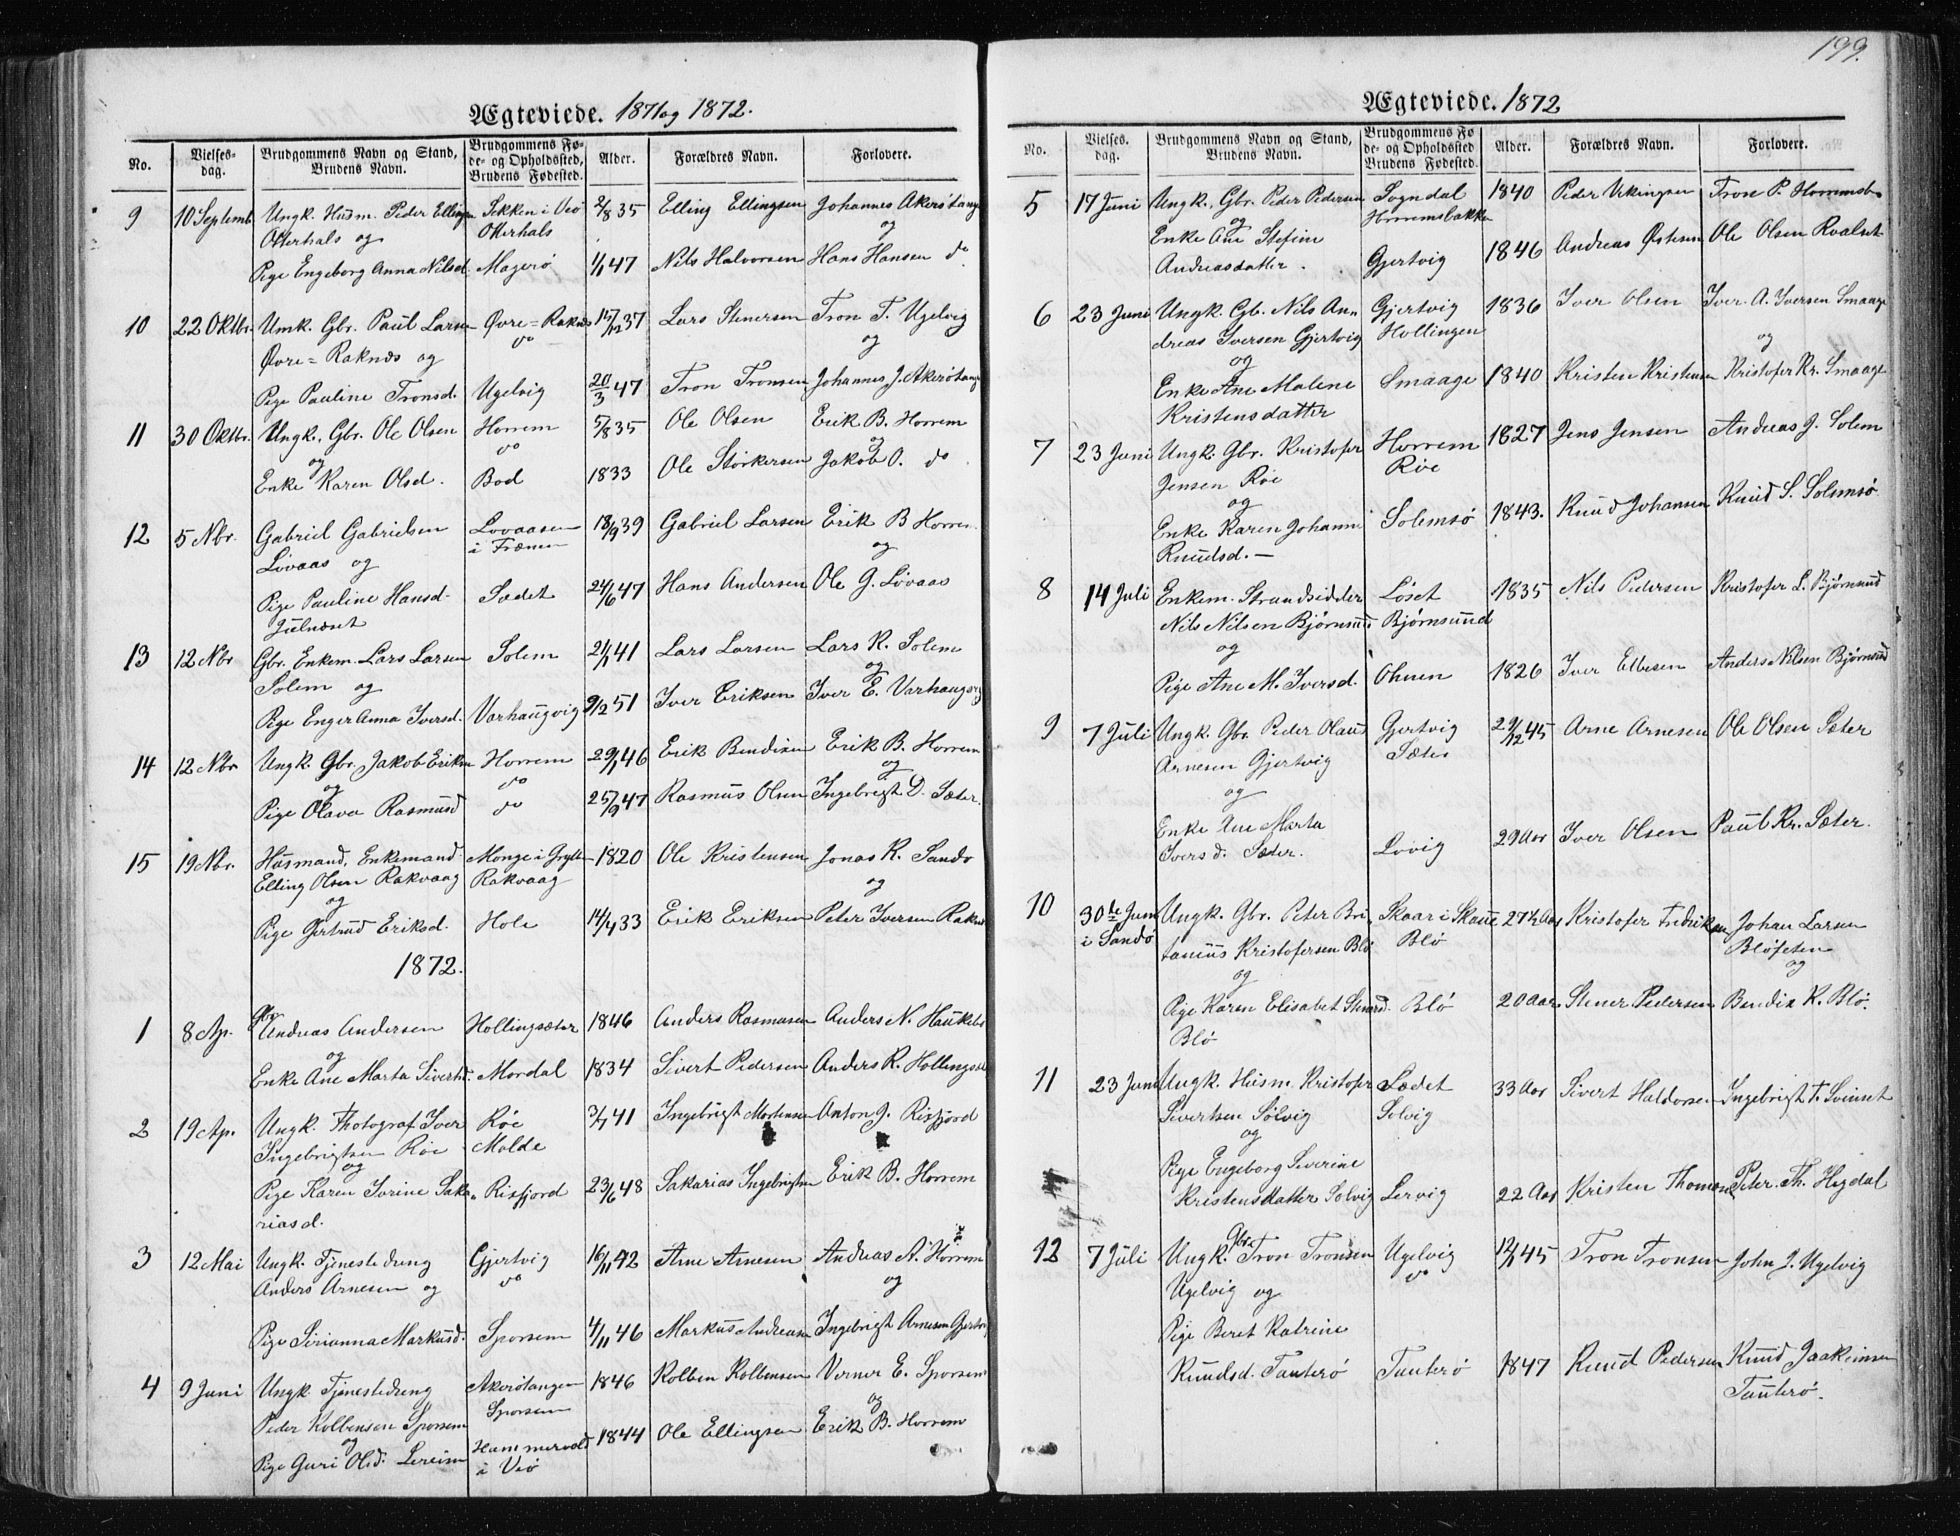 Ægteviede. 1871 og 1872.
No. Vielses-dag. Brudgommens Navn og Stand, Brudens Navn. Brudgommens Fø-de- og Opholdssted, Brudens Fødested. Alder. Forældres Navn. Forlovere.
9 10 Septemb Ungk. Husm. Peder Ellingsen Sekken i Veø 2/8 35 Elling Ellingsen Johannes Akerøtange
Otterhals og Otterhals og
Pige Engeborg Anna Nilsd. Magerø 1/1 47 Nils Halvorsen Hans Hansen do
10 22 Oktbr. Umk. Gbr. Paul Larsen Øvre=Raknæs 15/12 37 Lars Stenersen Tron T. Ugelvig
Øvre=Raknæs og do og
Pige Pauline Tronsd. Ugelvig 20/3 47 Tron Tronsen Johannes J. Akerøtange
11 30 Oktbr. Ungk. Gbr. Ole Olsen Horrem 5/8 35 Ole Olsen Erik B. Horrem
og do og
Enke Karen Olsd. Bod 1833 Ole Storkersen Jakob O. do
12 5 Nbr. Gabriel Gabrielsen Lovaasen 18/9 39 Gabriel Larsen Erik B Horrem
Lovaas og i Frænen og
Pige Pauline Hansd. Sædet 24/6 47 Hans Andersen Ole G. Lovaas
Julnæset
13 12 Nbr Gbr. Enkem. Lars Larsen Solem 21/1 41 Lars Larsen Lars K. Solem
Solem og og
Pige Enger Anna Iversd. Varhaugvig 9/2 51 Iver Eriksen Iver E. Varhaugvig
14 12 Nbr Ungk. Gbr. Jakob Eriksen Horrem 29/1 46 Erik Bendixen Erik B. Horrem
og do og
Pige Olava Rasmusd do 25/9 47 Rasmus Olsen Ingebrigt D. Sæter.
15 19 Nbr. Husmand, Enkemand Monge i Grytten 1820 Ole Kristensen Jonas R. Sandø
Elling Olsen Rakvaag Rakvaag
og og
Pige Gertrud Eriksd. Hole 14/4 33 Erik Eriksen Peter Iversen
1872.
1 8 Ap. Gbr. Andreas Andersen Hollingsæter 1846 Anders Rasmusen Anders N. Haukebø
og
Enke Ane Marta Sivertsd. Mordal 1834 Sivert Pedersen Anders R. Hollingsæt
2 19 Ap. Ungk. Photograf Iver Røe 3/7 41 Ingebrigt Mortensen Anton J. Risfjord
Ingebrigtsen Røe Molde
og
Pige Karen Ivrine Saka- Risfjord 23/6 48 Sakarias Ingebrigtsen Erik B. Horrem
riasd.
3 12 Mai Ungk. Tjenestedreng Gjertvig 16/11 42 Arne Arnesen Andreas A. Horrem
Anders Arnesen og do og
Pige Sirianna Markusd. Sporsem 4/11 46 Markus Andreasen Ingebrigt Arnesen Gjertvig
4 9 Juni Ungk. Tjenestedreng Akerøtangen 1846 Kolben Kolbensen Verner E. Sporsem
Peder Kolbensen Sporsem Sporsem og
og
Pige Guri Olsd. Lereim Hammervold 1844 Ole Ellingsen Erik B. Horrem
i Veø
199.
Ægteviede. 1872
No. Vielses-dag. Brudgommens Navn og Stand, Brudens Navn. Brudgommens Fø-de- og Opholdssted Brudens Fødested. Alder. Forældres Navn. Forlovere.
5 17 Juni Ungk. Gbr. Peder Pedersen Sogndal 1840 Peder Vikingsen Tron P. Horremsb.
og Horremsbakken
Enke Ane Stefine 1846 Andreas Østesen Ole Olsen Roalset
Andreasdatter. Gjertvig
6 23 Juni Ungk. Gb. Nils An- Gjertvig 1836 Iver Olsen Iver A. Iversen Smaage
dreas Iversen Gjertvig Hollingen og
og
Enke Ane Malene Smaage 1840 Kristen Kristensen Kristofer Kr. Smaage
Kristensdatter
7 23 Juni Ungk. Gbr. Kristofer Horrem 1827 Jens Jensen Andreas J. Solem
Jensen Røe Røe
og
Enke Karen Johanne Solemsø 1843. Knud Johansen Knud S. Solemsø
Knudsd. —
8 14 Juli Enkem. Strandsidder Løset 1835 Nils Pedersen Kristofer L. Bjørnsund
Nils Nilsen Bjørnsund Bjørnsund
og
Pige Ane M. Iversd. 1826 Iver Anders Nilsen Bjørnsund
9 7 Juli Ungk. Gbr. Peder Olaus Gjertvig 29/12 45 Arne Arnesen Ole Olsen Sæter
Arnesen Gjertvig Sæter
og
Enke Ane Marta
Iversd. Sæter. Lovig 29 Aar Iver Olsen Paul Kr. Sæter.
10 30te Juni Ungk. Gbr. Peter Bri- Skaar i Skoue 27½ Aar Kristofer Fredriksen Johan Larsen
i Sandø tanius Kristofersen Blø Blø Bløfeten
og og
Pige Karen Elisabet Stenersd. Blø 20 Aar Stener Pedersen Bendix K. Blø.
Blø
11 23 Juni Ungk. Husm. Kristofer Sædet 33 Aar Sivert Haldorsen Ingebrigt T. Svinset
Sivertsen Solvig Solvig
og
Pige Engeborg Siverine
Kristensdatter Solvig Lervig 22 Aar Kristen Thomasen Peter Th. Hegdal
12 7 Juli Ungk. Gbr. Tron Tronsen Ugelvig 12/1 45 Tron Tronsen John J. Ugelvig
Ugelvig og do
Pige Beret Katrine
Knudsd. Tauterø Tauterø 1847 Knud Pedersen Knud Joakimsen
Tauterø.